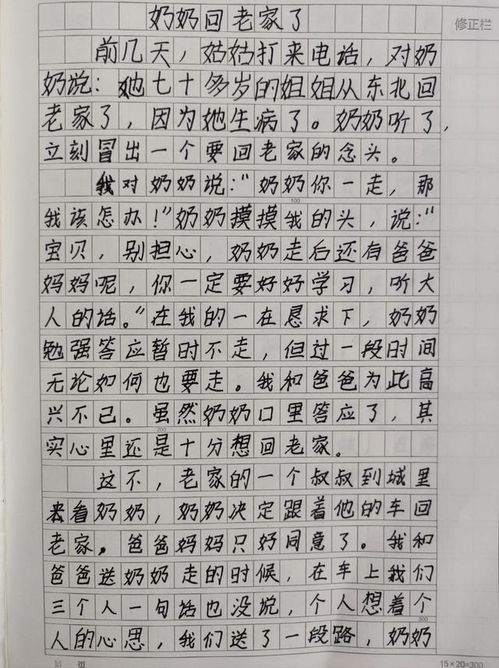 奶奶回老家了
修正栏
前几天，姑姑打来电话，对奶
奶说：她七十多岁的姐姐从东北回
老家了，因为她生病了。奶奶听了，
立刻冒出一个要回老家的念头。
我对奶奶说：“奶奶你一走，那
100
我该怎办！”奶奶摸摸我的头，说：“
宝贝，别担心，奶奶走后还有爸爸
妈妈呢，你一定要好好学习，听大
人的话。”在我的一在恳求下，奶奶
勉强答应暂时不走，但过一段时间
无论如何也要走。我和爸爸为此高
兴不己。虽然奶奶口里答应了，其
200
实心里还是十分想回老家。
这不，老家的一个叔叔到城里
来看奶奶，奶奶决定跟着他的车回
老家。爸爸妈妈只好同意了。我和
爸爸送奶奶走的时候，在车上我们
三个人一句话也没说，个人想着个
人的心思，我们送了一段路，奶奶
第 页
15×20=300